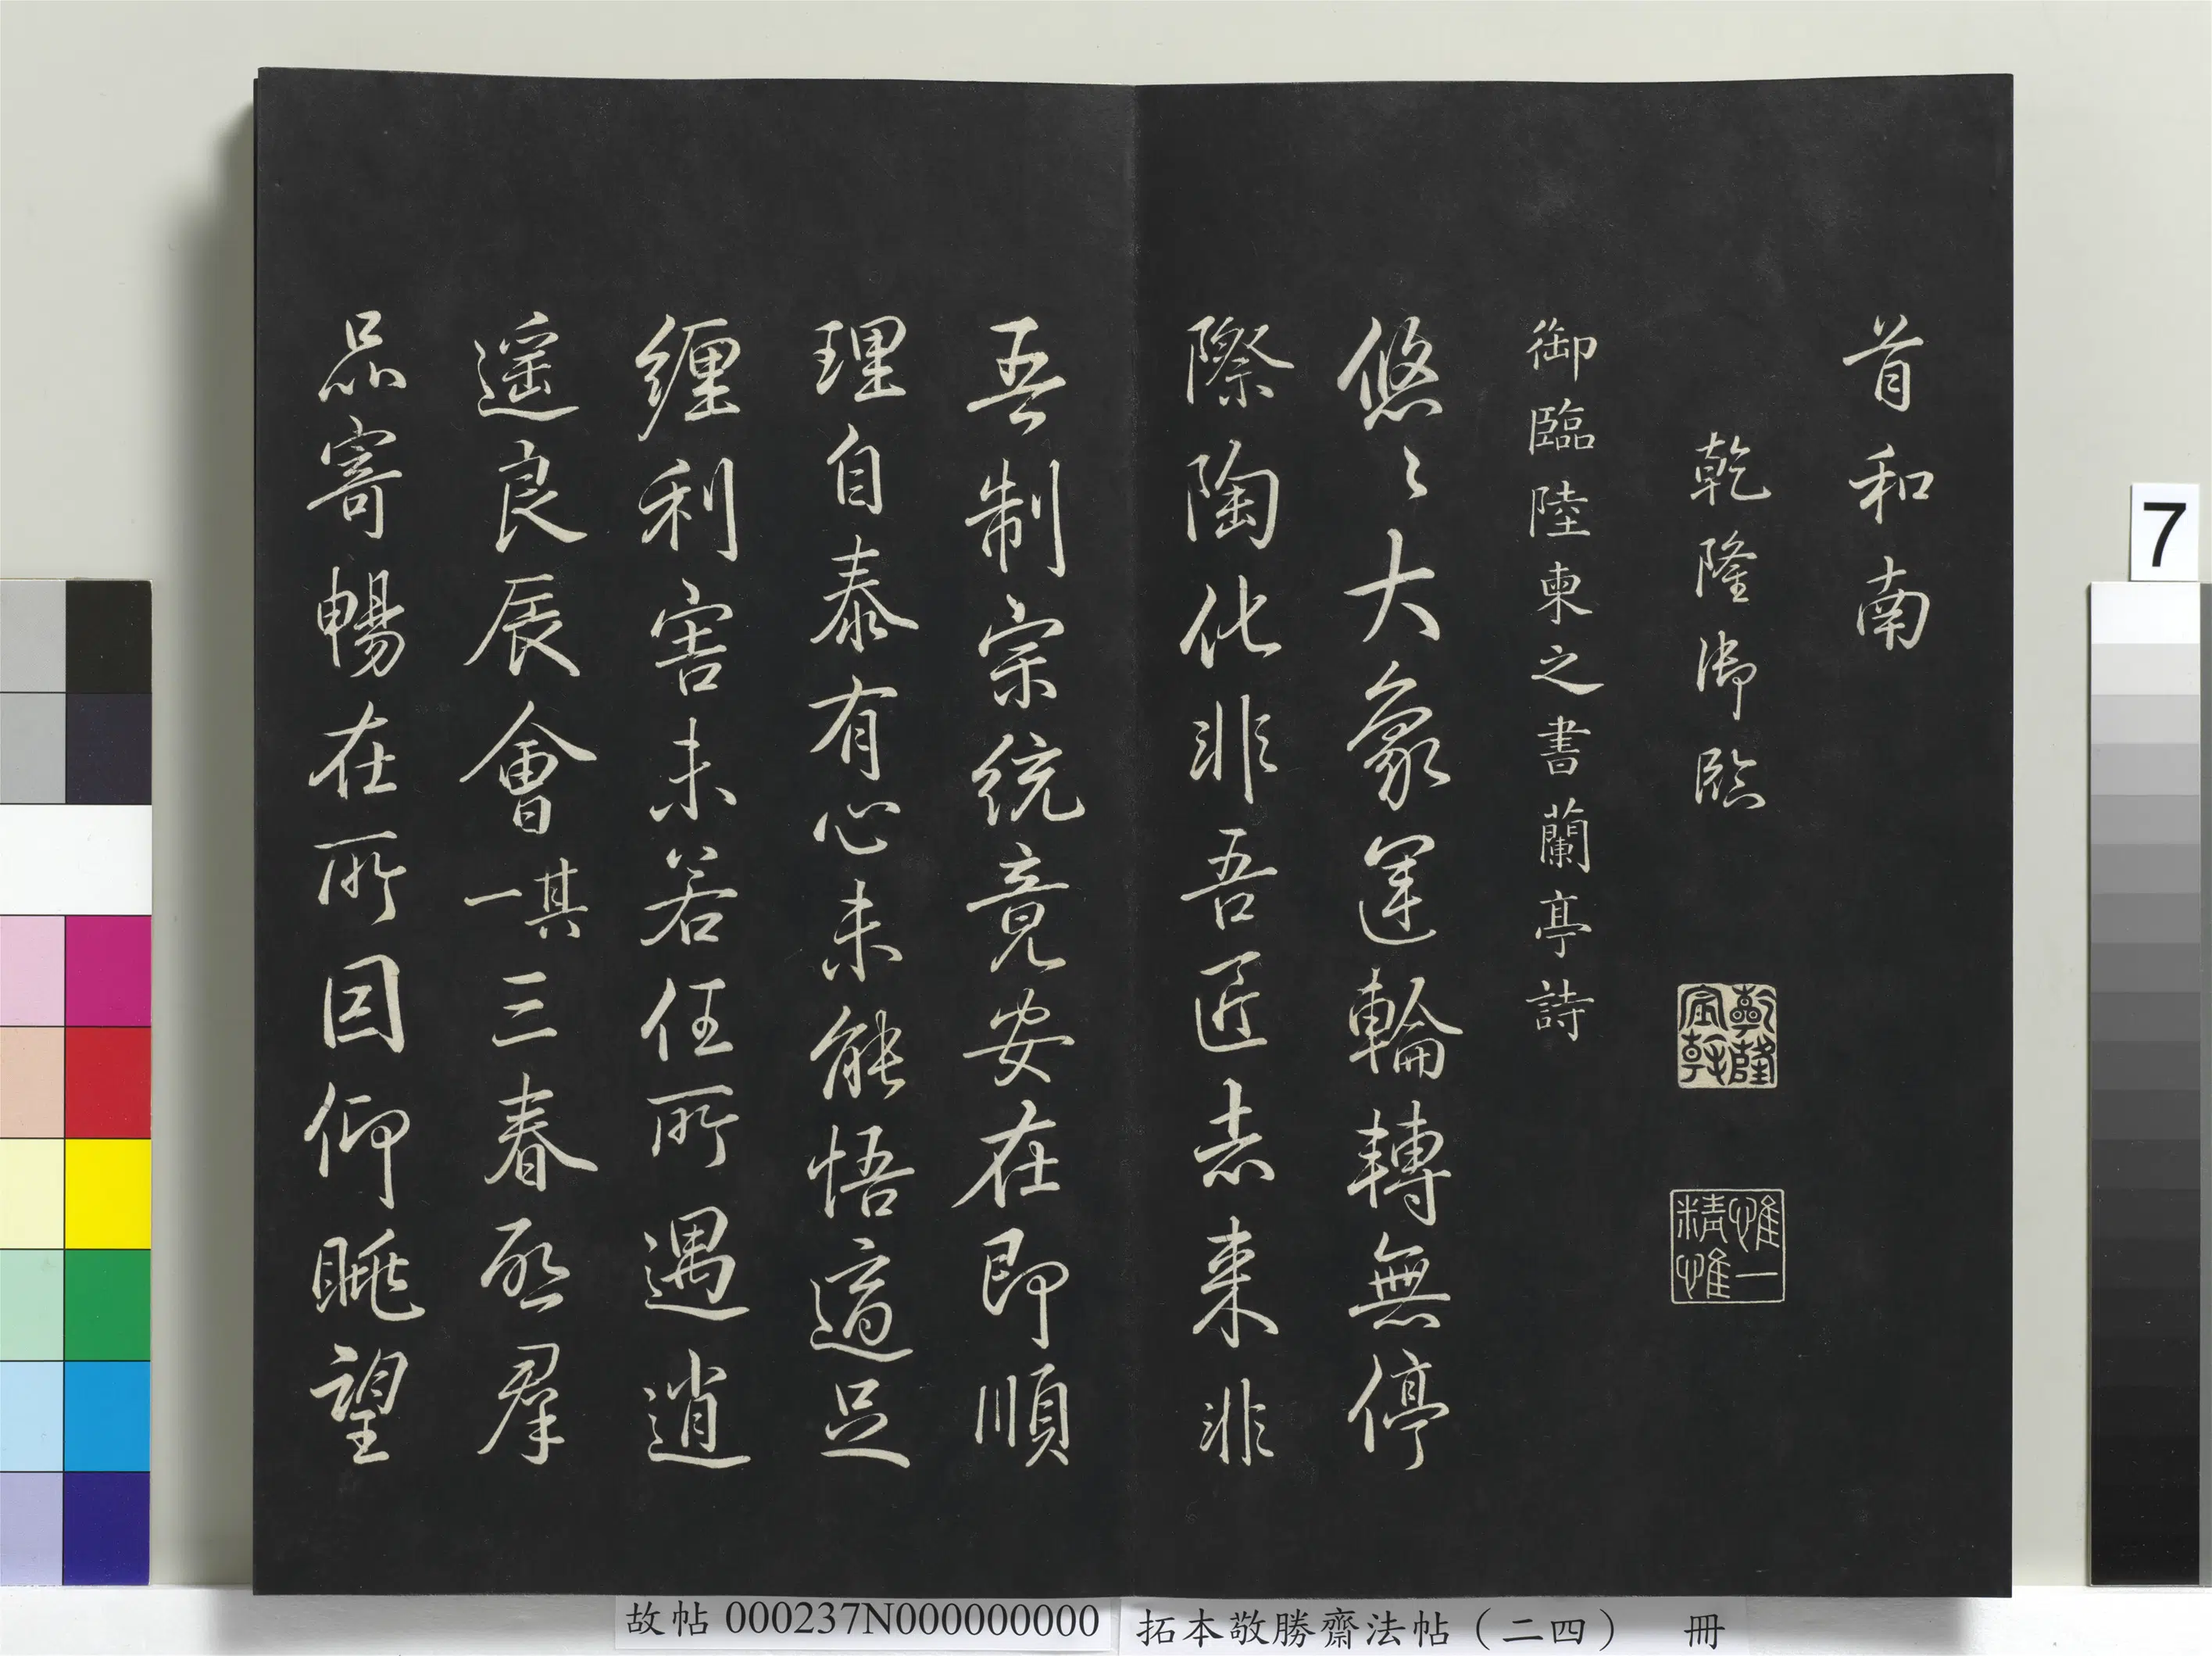 首和南
乾隆御臨
乾隆宸翰
惟精惟一
御臨陸柬之書蘭亭詩
悠〻大象運輪轉無停
際陶化非吾匠去來非
吾制宗統竟安在即順
理自泰有心未能悟適足
纏利害未若任所遇逍
遥良辰會其一三春啟羣
品寄暢在所因仰眺望
7
故帖000237N000000000
拓本敬勝齋法帖（二四） 冊